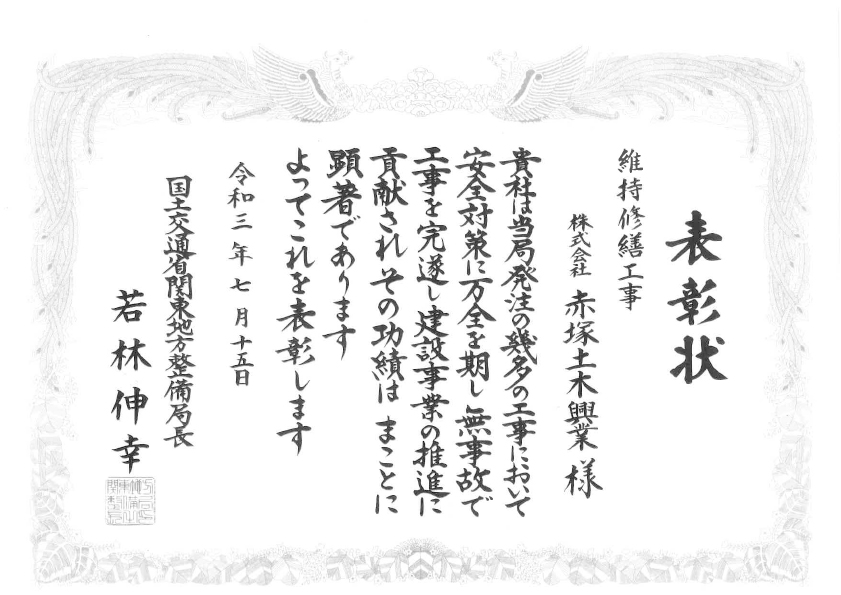 表彰状
維持修繕工事
株式会社 赤塚土木興業 様
貴社は当局発注の幾多の工事において
安全対策に万全を期し 無事故で
工事を完遂し建設事業の推進に
貢献されその功績は まことに
顕著であります
よってこれを表彰します
令和三年七月十五日
国土交通省関東地方整備局長
若林伸幸